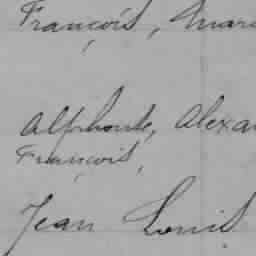 François, Mari
Alphonse, Alexan
François,
Jean Louis